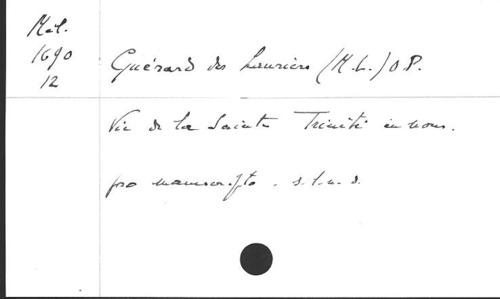 Mel.
1690
12
Guérard des Lauriers (M.L.) O.P.
Vie de la Sainte Trinité en nous.
pro manuscripto. s.l.n.d.